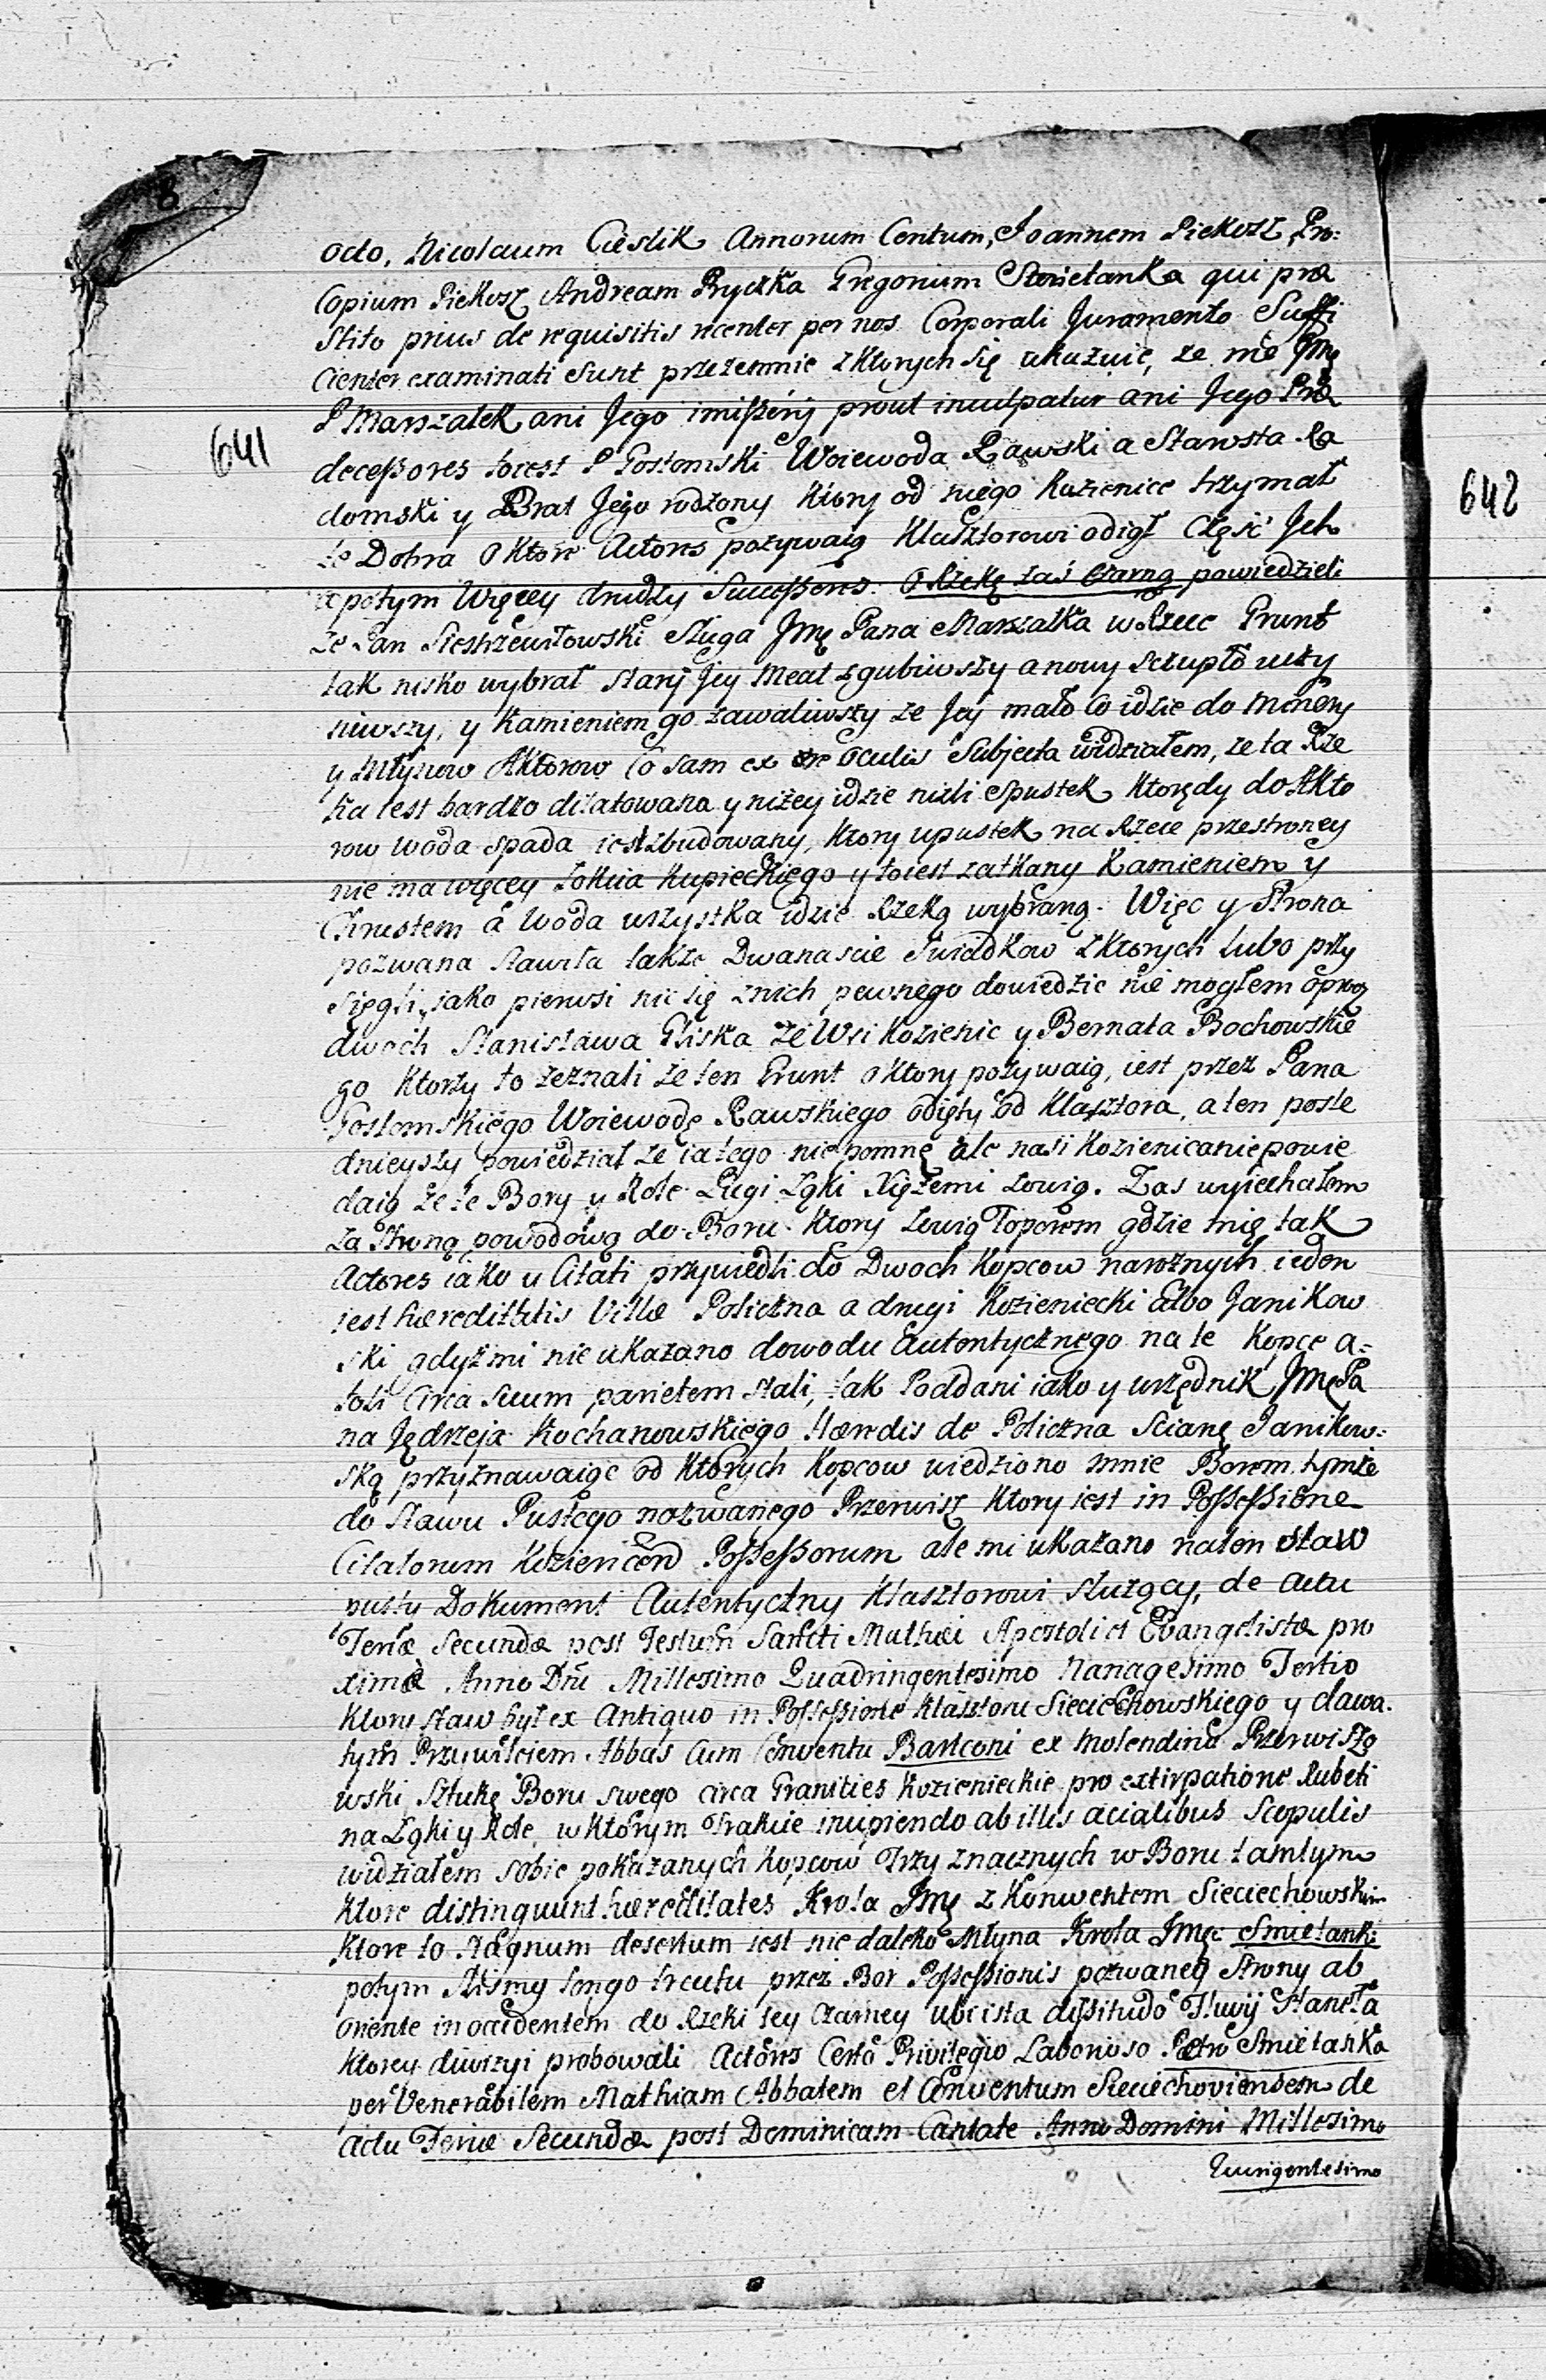 8
octo, Nicolaum Cieslik Annorum Centum, Joannem Piekosz, Pro:
Copium Piekosz Andream Pryczka Gregorium Smietanka qui præ
stito prius de requisitis recenter per nos Corporali Juramento Suffi
cienter examinati Sunt przezemnie z ktorych się ukazuie, ze nie Jmę
P Marszałek ani Jego imißßęrij prout inculpatur ani Jego Præ
decessores toiest P Gostomski Woiewoda Rawski a Starosta Ra
641
domski y Brat Jego rodzony ktory od niego Kozienice trzymał
642
te Dobra o ktore Actores pozywaią Klasztorowi odiął część Ich
a potym Więcey drudzy Successores. O Rzekę zaś Czarną powiedzieli
ze Pan Siestrzewitowski Sługa Jmę Pana Marszałka w Rzece Grunt
tak nisko wybrał stary Jey Meat zgubiwszy a nowy sczupło uczy
niwszy, y Kamieniem go zawaliwszy ze Jey mało co idzie do Minery
y Młynow Aktorow Co sam ex Oculis Subjecta widziałem, ze ta Rze
ka iest bardzo dilatowana y niżey idzie niżli Spustek ktorędy do Akto
row woda spada iest zbudowany, ktory upustek na Rzece przestroney
nie ma więcey Łokcia Kupieckiego y to iest zatkany Kamieniem y
Chrustem a Woda wszystka idzie Rzeką wybraną. Więc y Strona
pozwana stawiła także Dwanascie Swiadkow z ktorych lubo przy
sięgli, iako pierwsi nic się z nich pewnego dowiedzic nie mogłem oprocz
dwoch Stanisława Gliska ze Wsi Kozienic y Bernata Bochowskie
go ktorzy to zeznali ze ten Grunt o ktory pozywaią, iest przez Pana
Gostomskiego Woiewodę Rawskiego odięty od Klasztora, a ten posle
dnieyszy powiedział ze ia tego nie pomnę ale nasi Kozieniczanie powie
daią ze te Bory y Role Ługi Łąki Xiężemi zowią. Zas wyiechałem
za Stroną powodową do Boru ktory zowią Toporem gdzie mię tak
Actores iako y Citati przywiedli do Dwoch Kopcow narożnych ieden
iest hæreditatis Villæ Policzna a drugi Kozieniecki albo Janikow
ski gdyż mi nie ukazano dowodu Autentycznego na te Kopce a=
toli circa suum parietem stali, tak Poddani iako y urzędnik Jmę Pa
na Jędrzeja Kochanowskiego Hæredis de Policzna Scianę Janikow:
ską przyznawaiąc od ktorych Kopcow wiedziono mnie Borem tymże
do Stawu Pustego nazwanego Przerwisz ktory iest in Possessione
Citatorum Koziencen Possessorum ale mi ukazano na ten staw
pusty Dokument Autentyczny Klasztorowi służący, de actu
Feriæ Secundæ post Festum Sancti Mathæi Apostoli et Evangelistæ pro
ximæ Anno Dńi Millesimo Quadringentesimo Nanagesimo Tertio
ktory staw był ex Antiquo in Possessione Klasztoru Sieciechowskiego y dawa.
tym Przywileiem Abbas Cum Conventu Bartconi ex Molendino Przerwiszo
wski Sztukę Boru swego circa Granities Kozienieckie pro extirpatione Rubeti
na Łąki y Role, w ktorym Trakcie incipiendo ab illis acialibus Scopulis
widziałem sobie pokazanych Kopcow Trzy znacznych w Boru tamtym
ktore distinguunt hæreditates Krola Jmę z Konwentem Sieciechowskim
ktore to Stagnum desertum iest nie daleko Młyna Krola Jmę Smietanki
potym Slismy longo tractu przez Bor Possessionis pozwaney Strony ab
oriente in occidentem do Rzeki tey Czarney ubi ista Fluvij Staneła
ktorey diwizyi probowali Actores Certo Privilegio Laborioso Petro Smietanka
per Venerabilem Mathiam Abbatem et Conventum Sieciechoviensem de
actu Feriæ Secundæ post Dominicam Cantate Anno Domini Millesimo
Quingentesimo